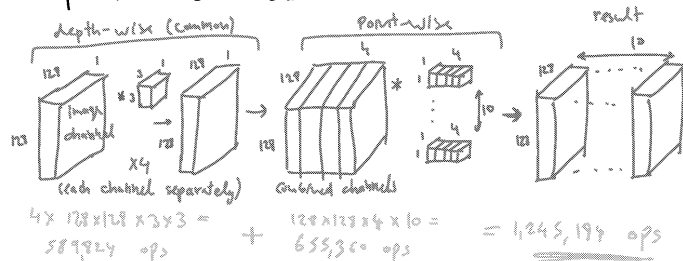 depth-wise (common)
point-wise
result
128
1
3
1
*
3
128
1
Image
channel
128
128
x4
(each channel separately)
4
128
*
128
Combined channels
1
4
1
10
1
4
1
10
128
128
4 x 128x128 x 3x3 =
589,824 ops
+
128x128x4 x 10 =
655,360 ops
= 1,245,184 ops